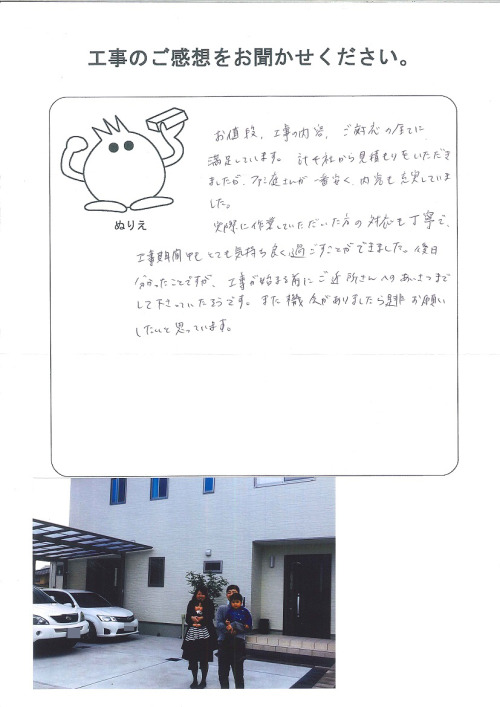 工事のご感想をお聞かせください。
ぬりえ
お値段、工事の内容、ご対応の全てに
満足しています。計4社から見積もりをいただき
ましたが、ファミ庭さんが一番安く、内容も充実していま
した。
実際に作業していただいた方の対応も丁寧で、
工事期間中もとても気持ち良く過ごすことができました。後日
分かったことですが、工事が始まる前にご近所さんへのあいさつまで
して下さっていたそうです。また機会がありましたら是非お願い
したいと思っています。